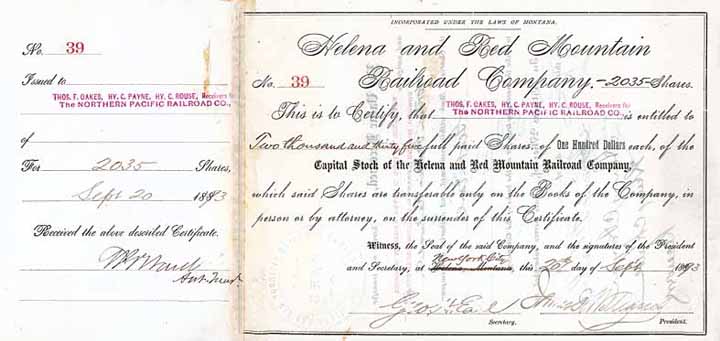 No. 39
Issued to
THOS. F. OAKES, HY. C. PAYNE, HY. C. ROUSE, Receivers for
The NORTHERN PACIFIC RAILROAD CO.,
of
For 2035 Shares,
Sept 20 1893
Received the above described Certificate.
INCORPORATED UNDER THE LAWS OF MONTANA.
Helena and Red Mountain
No. 39 Railroad Company. -2035- Shares.
This is to Certify, that THOS. F. OAKES, HY. C. PAYNE, HY. C. ROUSE, Receivers for The NORTHERN PACIFIC RAILROAD CO., is entitled to
Two thousand and thirty five full paid Shares, of One Hundred Dollars each, of the
Capital Stock of the Helena and Red Mountain Railroad Company,
which said Shares are transferable only on the Books of the Company, in
person or by attorney, on the surrender of this Certificate.
Witness, the Seal of the said Company, and the signatures of the President
New York City
and Secretary, at Helena, Montana, this 20th day of Sept 1893
Geo. H. Earl
Secretary. President.